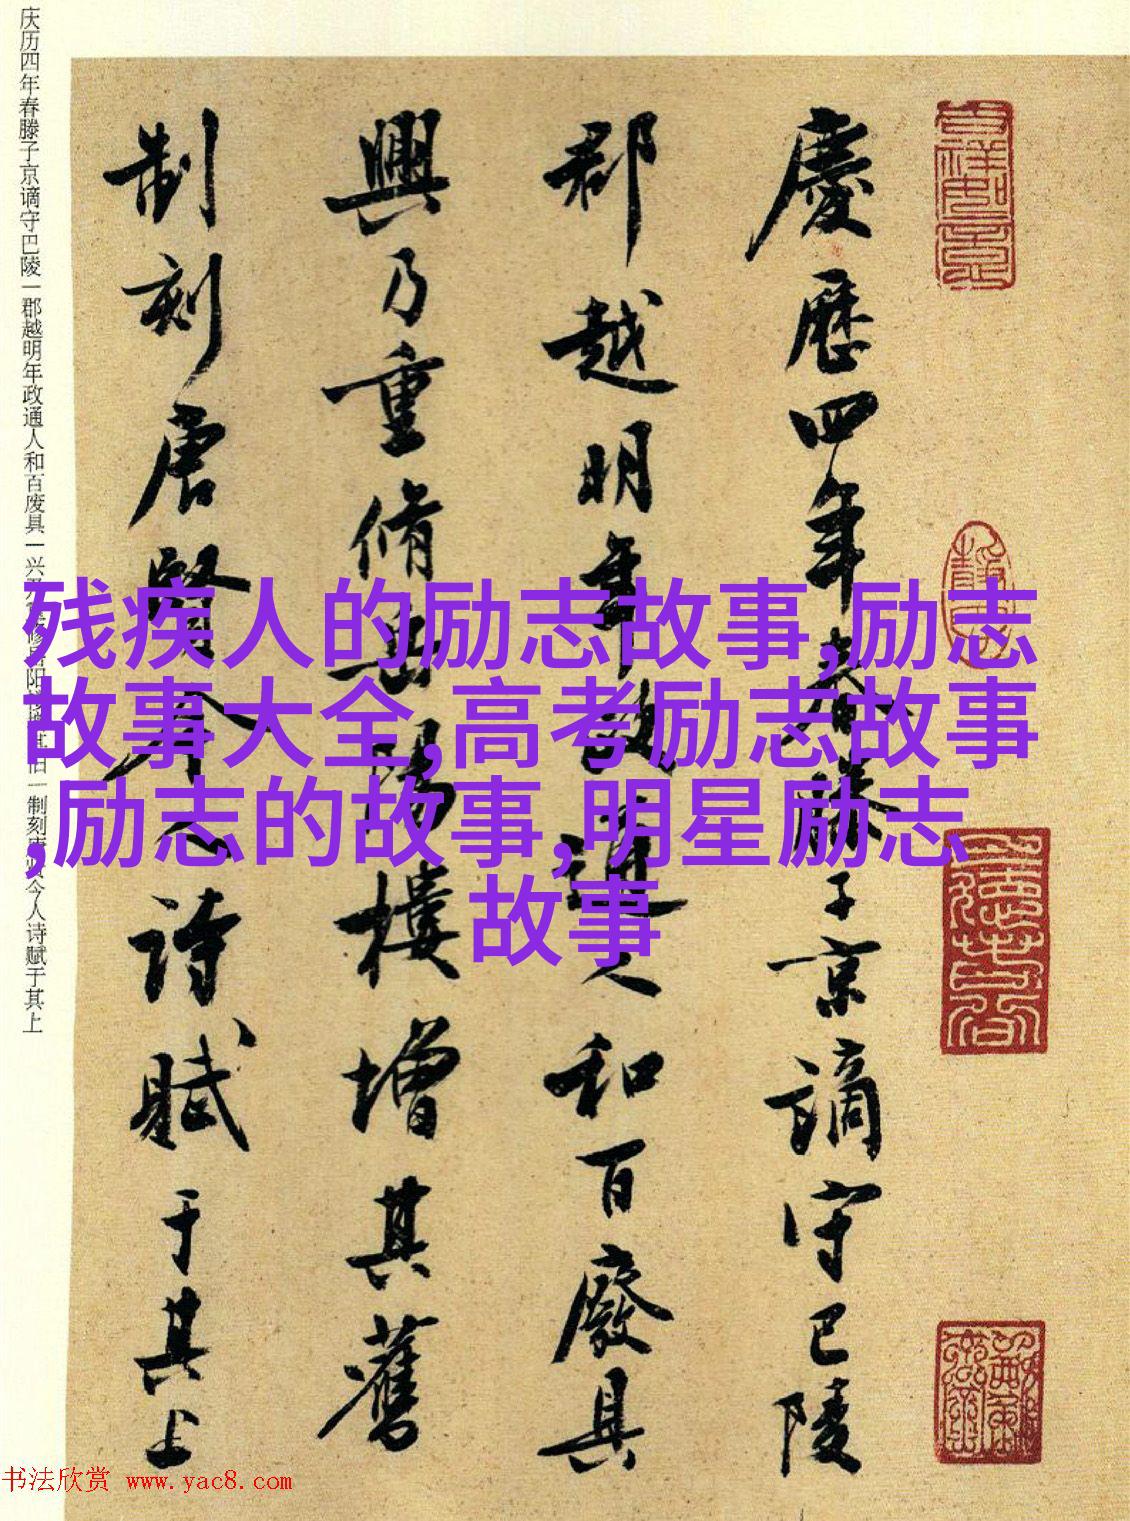 慶歷四年春滕子京謫守巴陵
郡越明年政通人和百廢具
興乃重脩岳陽樓增其舊
制刻唐賢今人詩賦于其上
庆历四年春滕子京谪守巴陵一郡越明年政通人和百废具一兴乃重修岳阳楼增其旧一制刻唐贤今人诗赋于其上
残疾人的励志故事,励志
故事大全,高考励志故事
,励志的故事,明星励志
故事
书法欣赏 www.yac8.com